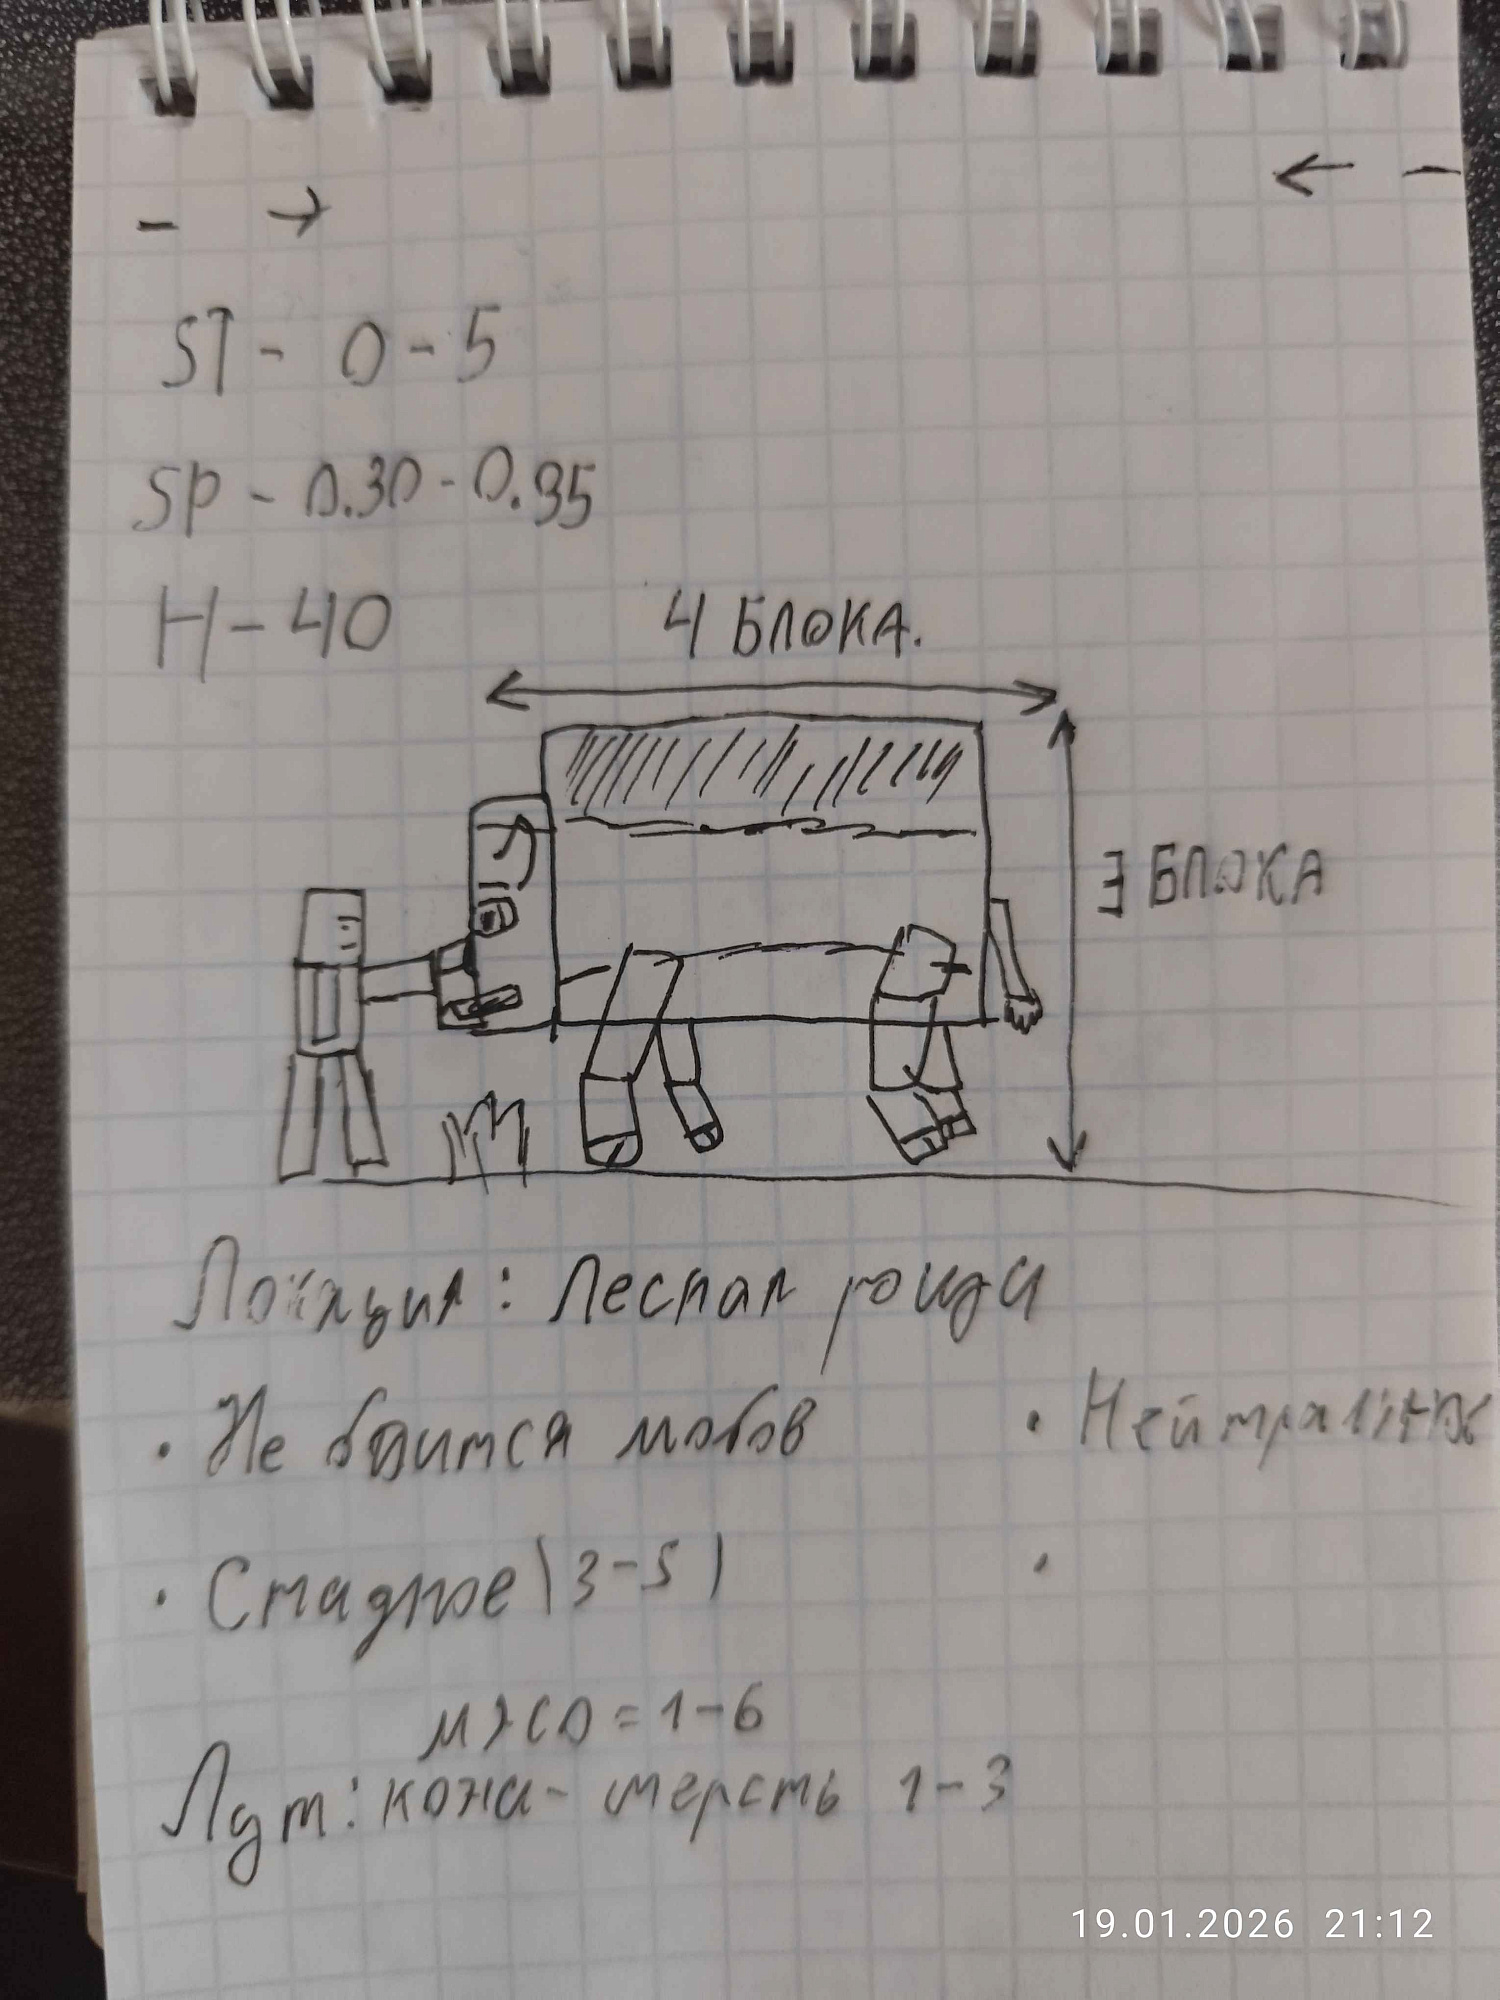 - → ← -
ST - 0 - 5
SP - 0.30 - 0.35
H - 40
4 БЛОКА.
3 БЛОКА
Локация: Лесная роща
• Не боится мобов • Нейтральное
• Стадное (3-5) •
мясо = 1-6
Лут: кожа - шерсть 1-3
19.01.2026 21:12